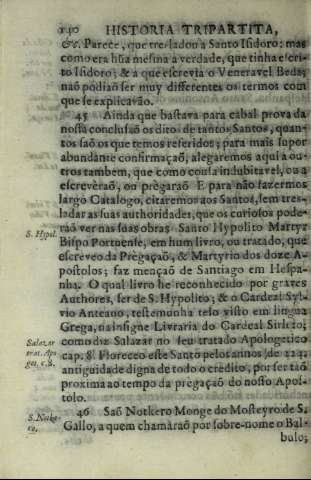 140 HISTORIA TRIPARTITA,
&c. Parece, que tresladou a Santo Isidoro: mas
como era hũa mesma a verdade, que tinha escri-
to Isidoro; & a que escrevia o Veneravel Beda;
naõ podiaõ ser muy differentes os termos com
que se explicavaõ.
45 Ainda que bastava para cabal prova da
nossa conclusaõ os dito de tantos Santos, quan-
tos saõ os que temos referidos; para mais supor
abundante confirmaçaõ, alegaremos aqui a ou-
tros tambem, que como cousa indubitavel, ou a
escrevèraõ, ou prègaraõ E para não fazermos
largo Catalogo, citaremos aos Santos, sem tres-
ladar as suas authoridades, que os curiosos pode-
raõ ver nas suas obras Santo Hypolito Martyr
S. Hypol.
Bispo Portuense, em hum livro, ou tratado, que
escreveo da Prègaçaõ, & Martyrio dos doze A-
postolos; faz mençaõ de Santiago em Hespa-
nha. O qual livro he reconhecido por graves
Authores, ser de S. Hypolito; & o Cardeal Syl-
vio Anteano, testemunha telo visto em lingua
Grega, na insigne Livraria do Cardeal Sirleto;
como diz Salazar no seu tratado Apologetico
Salazar
trat. Apo
get. c. 8.
cap. 8. Floreceo este Santo pelos annos de 224.
antiguidade digna de todo o credito, por ser taõ
proxima ao tempo da prègaçaõ do nosso Apos-
tolo.
46 Saõ Notkero Monge do Mosteyro de S.
S. Notke-
ro.
Gallo, a quem chamàraõ por sobre-nome o Bal-
bulo;